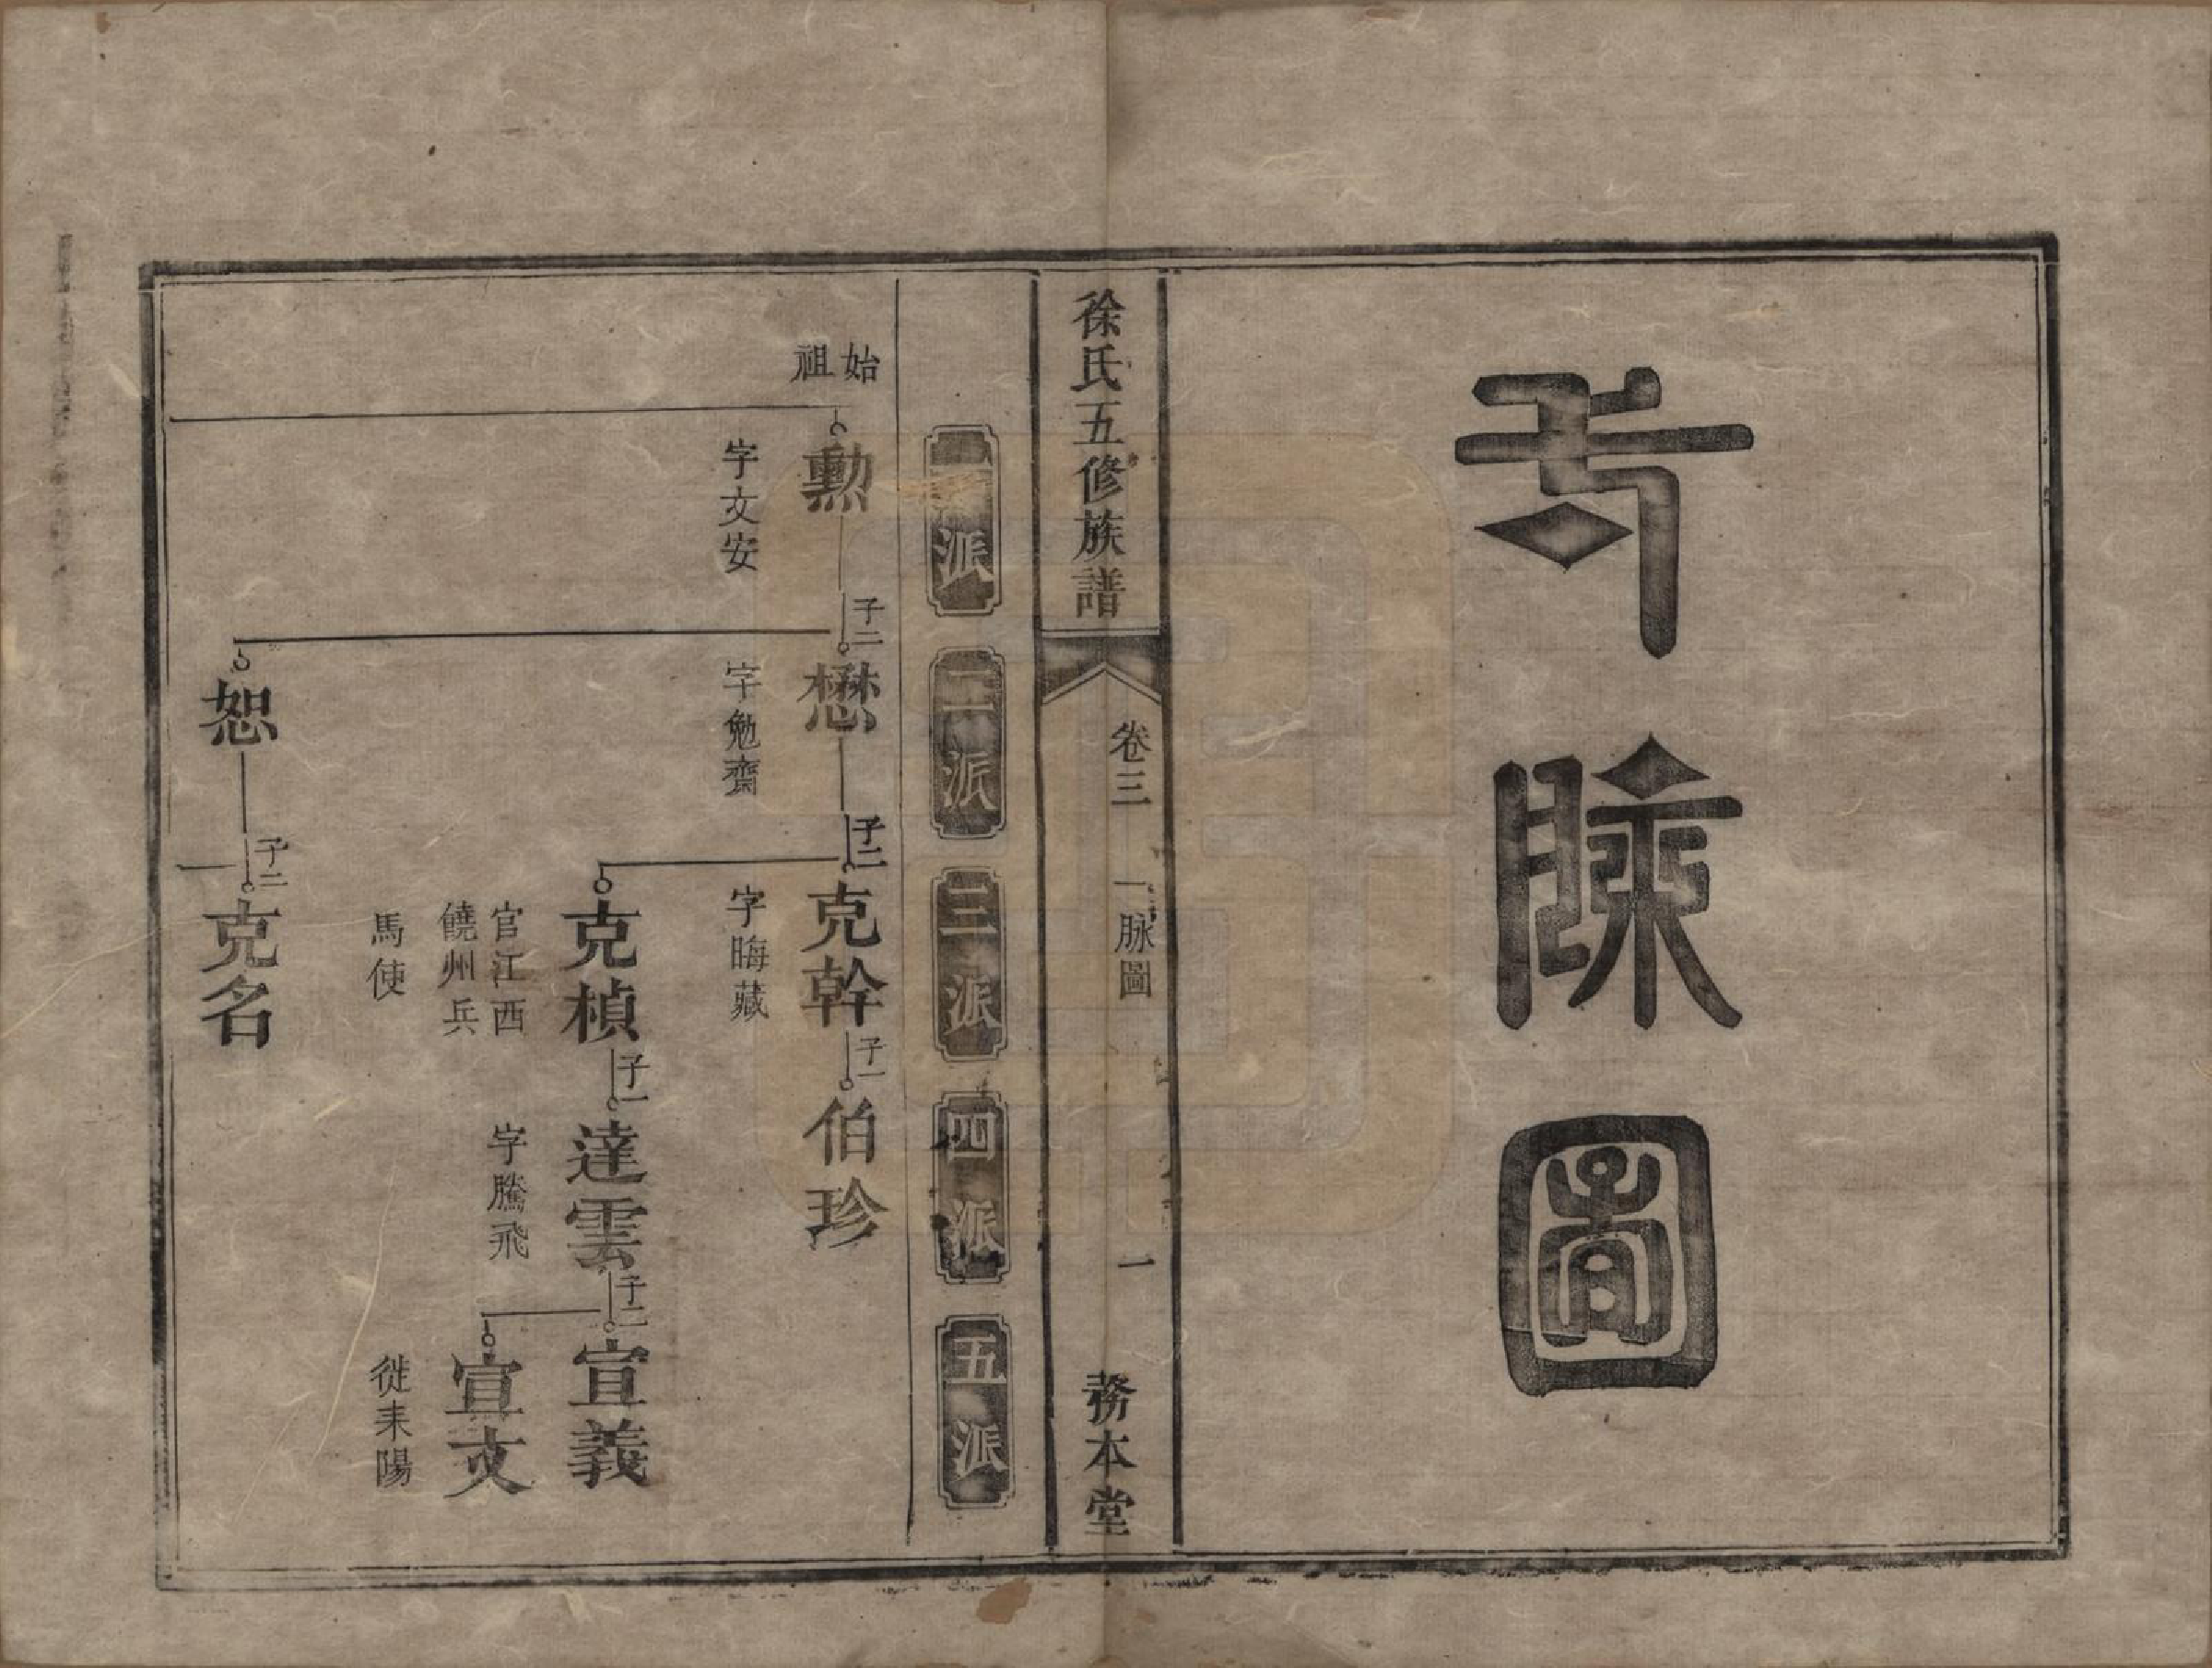 弌脈圖
徐氏五修族譜
卷三
一脉圖
一
務本堂
一派
二派
三派
四派
五派
始祖
勳
字文安
子二
懋
字勉齋
子二
克幹
字晦藏
子一
伯珍
克楨
官江西
饒州兵
馬使
子一
達雲
字騰飛
子二
宣義
宣文
徙耒陽
恕
子二
克名